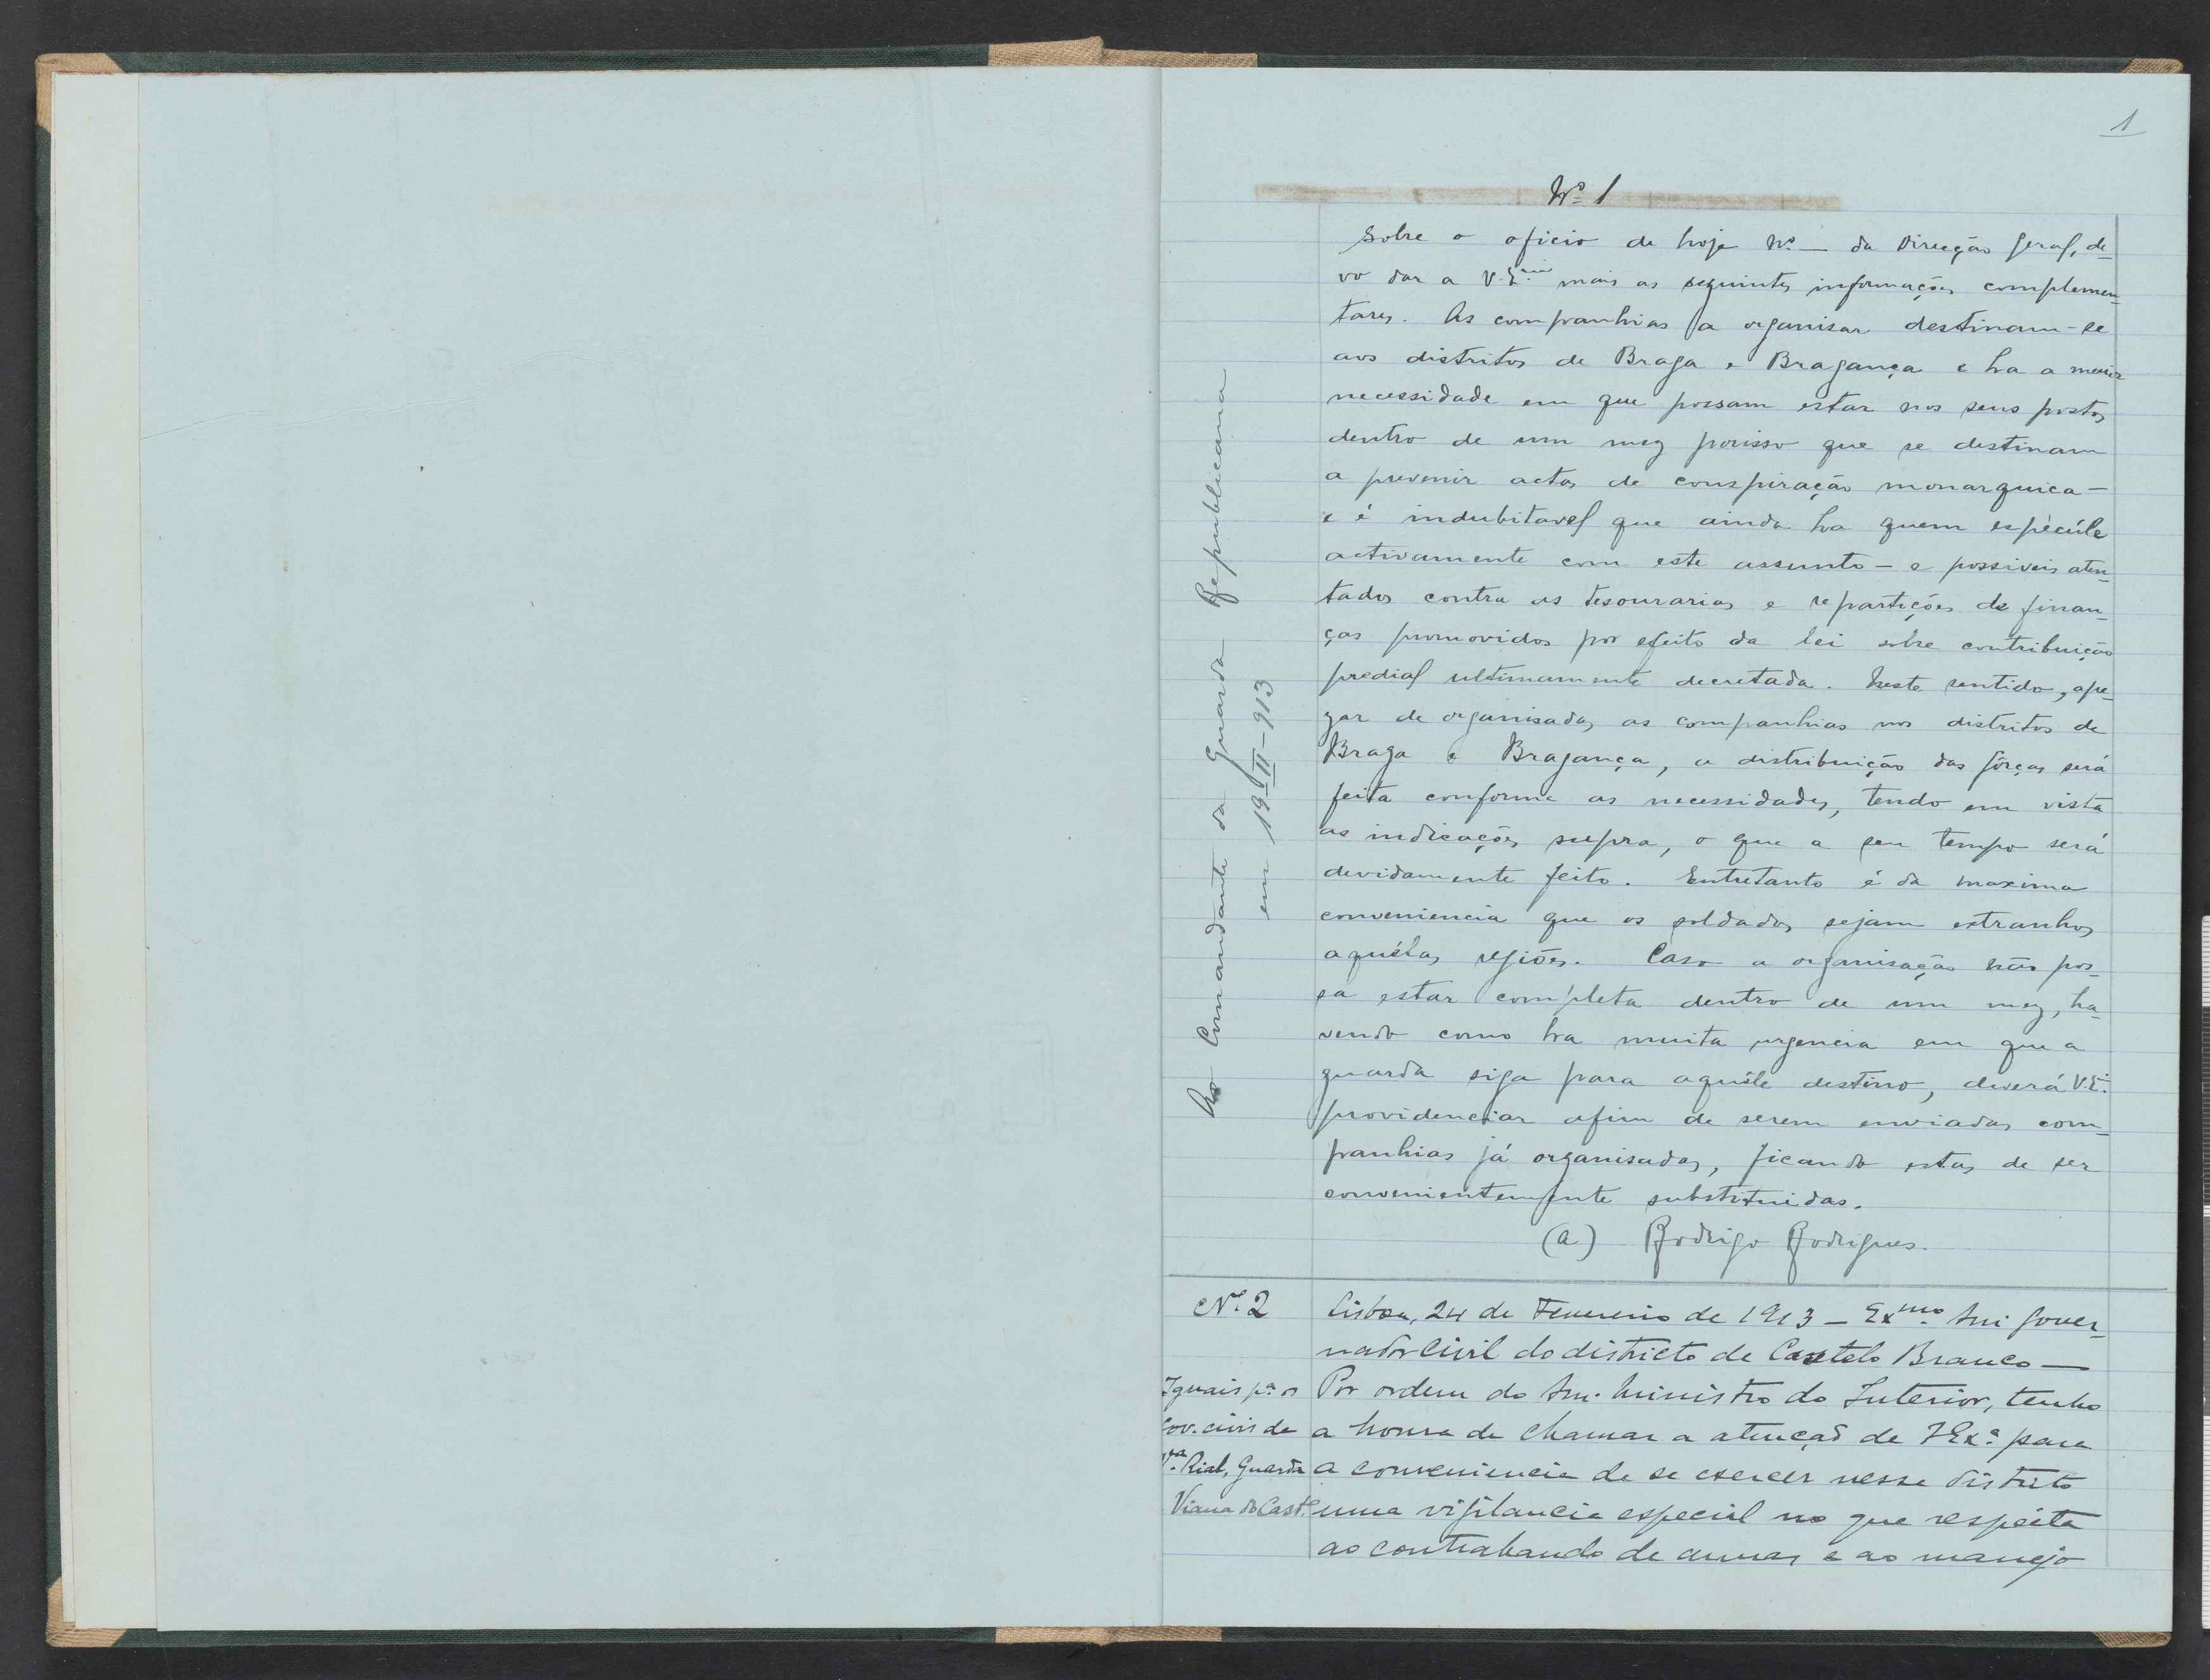 1
Nº 1
Ao Comandante da Guarda Republicana
em 19-II-913
Sobre o oficio de hoje Nº — da Direcção Geral, de-
vo dar a V. Exª mais as seguintes informações complemen-
tares. As companhias a organisar destinam-se
aos distritos de Braga e Bragança e ha a maior
necessidade em que possam estar nos seus postos
dentro de um mez porisso que se destinam
a prevenir actos de conspiração monarquica —
e é indubitavel que ainda ha quem espécúle
activamente com este assunto — e possiveis aten-
tados contra as tesourarias e repartições de finan-
ças promovidos por efeito da lei sobre contribuição
predial ultimamente decretada. Neste sentido, ape-
zar de organisadas as companhias nos distritos de
Braga e Bragança, a distribuição das fôrças será
feita conforme as necessidades, tendo em vista
as indicações supra, o que a seu tempo será
devidamente feito. Entretanto é da maxima
conveniencia que os soldados sejam extranhos
aquélas regiões. Caso a organisação não pos-
sa estar completa dentro de um mez, ha-
vendo como ha muita urgencia em que a
guarda siga para aquêle destino, deverá V. E.
providenciar afim de serem enviadas com-
panhias já organisadas, ficando estas de ser
convenientemente substituidas.
(a) Rodrigo Rodrigues.
Nº 2
Lisboa, 24 de Fevereiro de 1913 — Exmo Snr Gover-
nador Civil do districto de Castelo Branco —
Iguais pª os
Gov. civis de
Vª Rial, Guarda
Viana do Castº
Por ordem do Snr. Ministro do Interior, tenho
a honra de chamar a atenção de V Exª para
a conveniencia de se exercer nesse distrito
uma vigilancia especial no que respeita
ao contrabando de armas e ao manejo